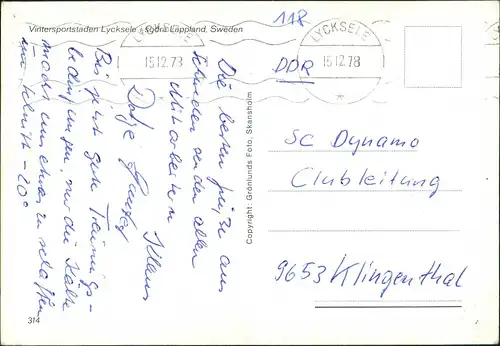 Vintersportstaden Lycksele i Södra Lappland, Sweden
118
LYCKSELE
15.12.78
LYCKSELE
15.12.78
DDR
Die besten Grüße aus
Schweden senden allen
Mitarbeitern
Klaus
Bis jetzt gute Trainings-
bedingungen, nur die Kälte
macht uns etwas zu schaffen
im Schnitt -20°
Copyright: Grönlunds Foto, Skansholm
SC Dynamo
Clubleitung
9653 Klingenthal
314